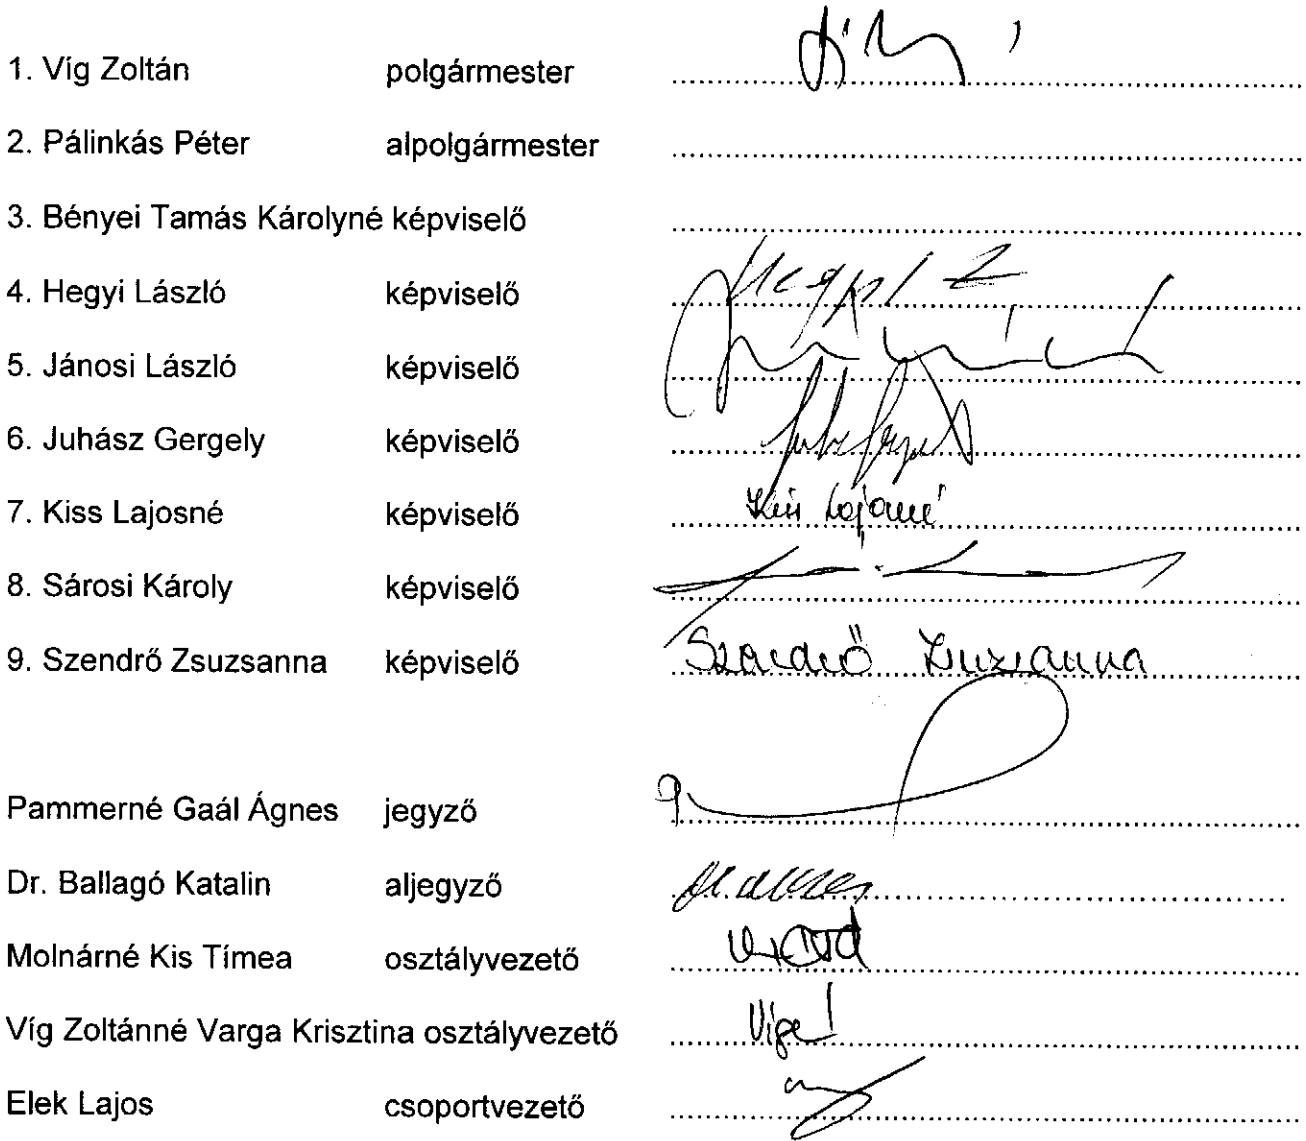 1. Víg Zoltán polgármester
2. Pálinkás Péter alpolgármester
3. Bényei Tamás Károlyné képviselő
4. Hegyi László képviselő
5. Jánosi László képviselő
6. Juhász Gergely képviselő
7. Kiss Lajosné képviselő Kiss Lajosné
8. Sárosi Károly képviselő
9. Szendrő Zsuzsanna képviselő Szendrő Zsuzsanna
Pammerné Gaál Ágnes jegyző
Dr. Ballagó Katalin aljegyző
Molnárné Kis Tímea osztályvezető
Víg Zoltánné Varga Krisztina osztályvezető
Elek Lajos csoportvezető